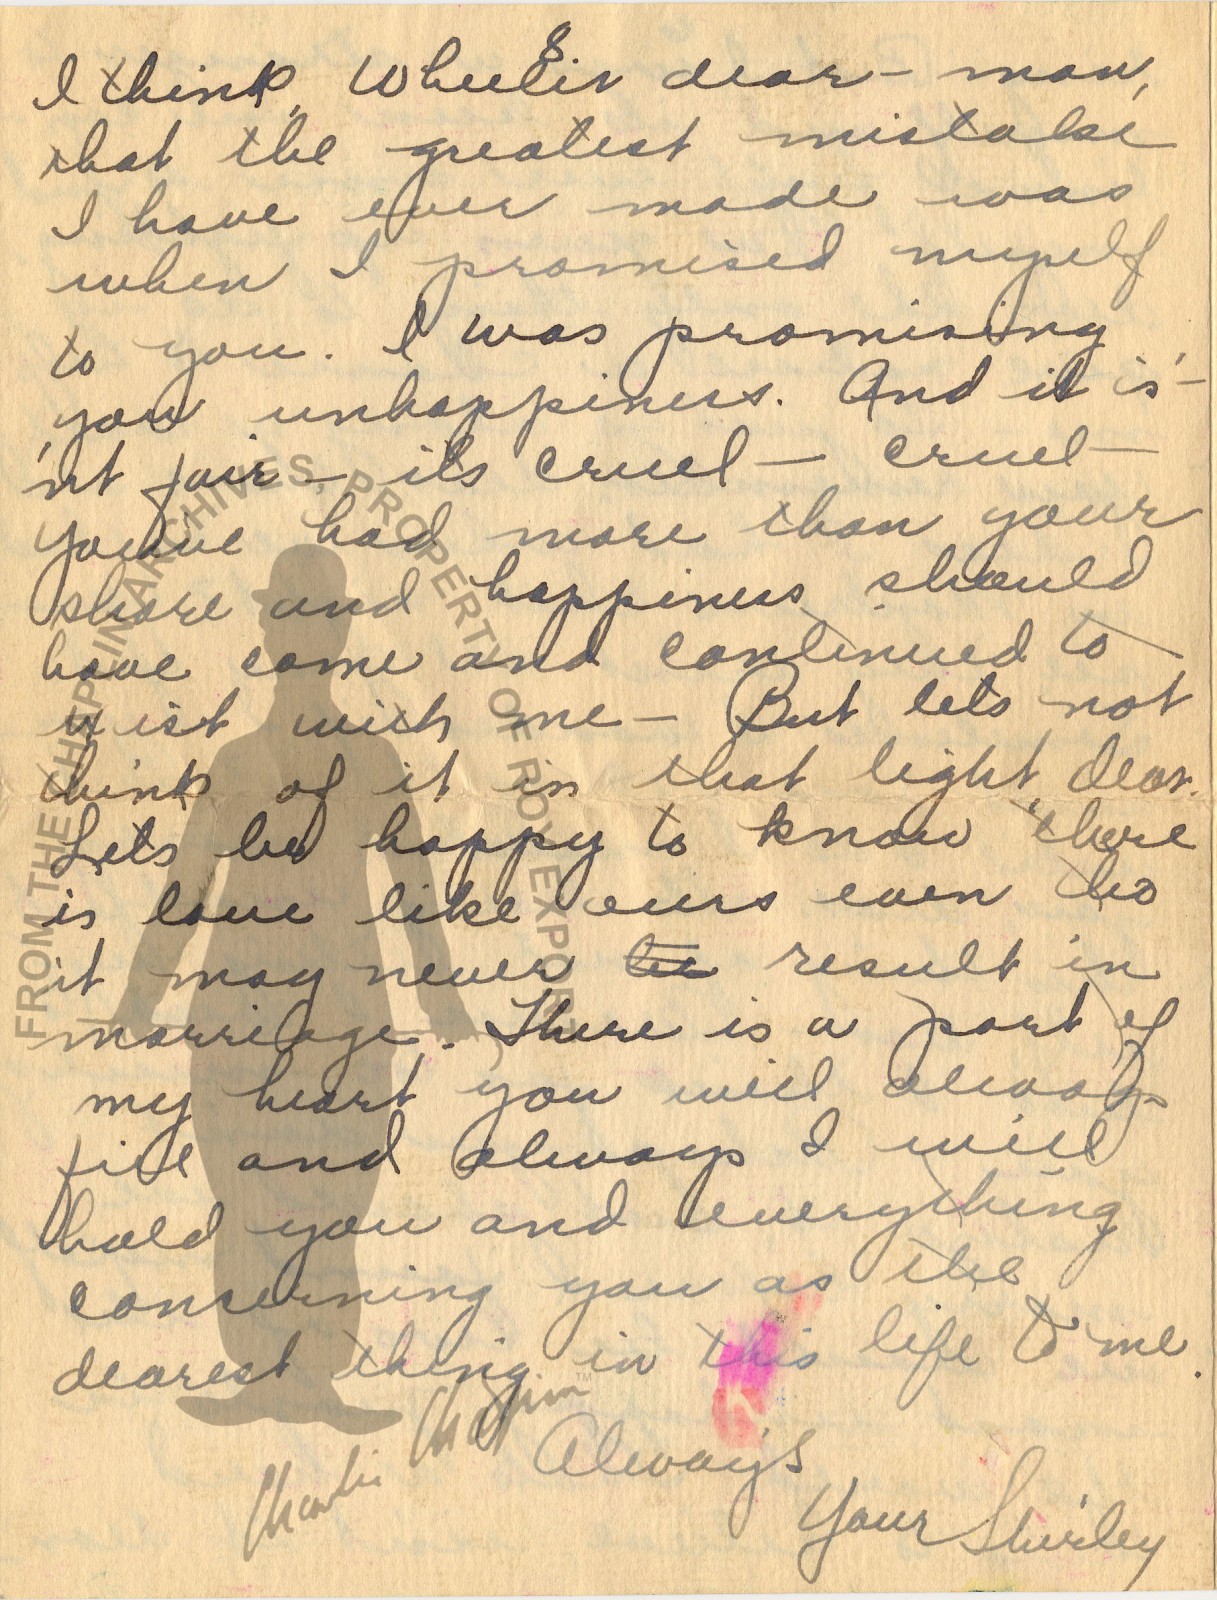 8
I think, Wheelir dear - man,
that the greatest mistake
I have ever made was
when I promised myself
to you. I was promising
you unhappiness. And it is'-
'nt fair - its cruel - cruel -
You've had more than your
share and happiness should
have come and continued to
exist with me - But lets not
think of it in that light, dear.
Lets be happy to know there
is love like ours even tho
it may never be result in
marriage. There is a part of
my heart you will always
fill and always I will
hold you and everything
concerning you as the
dearest thing in this life to me.
Always
Your Shirley
FROM THE CHAPLIN ARCHIVES, PROPERTY OF ROY EXPORT
Charlie Chaplin™